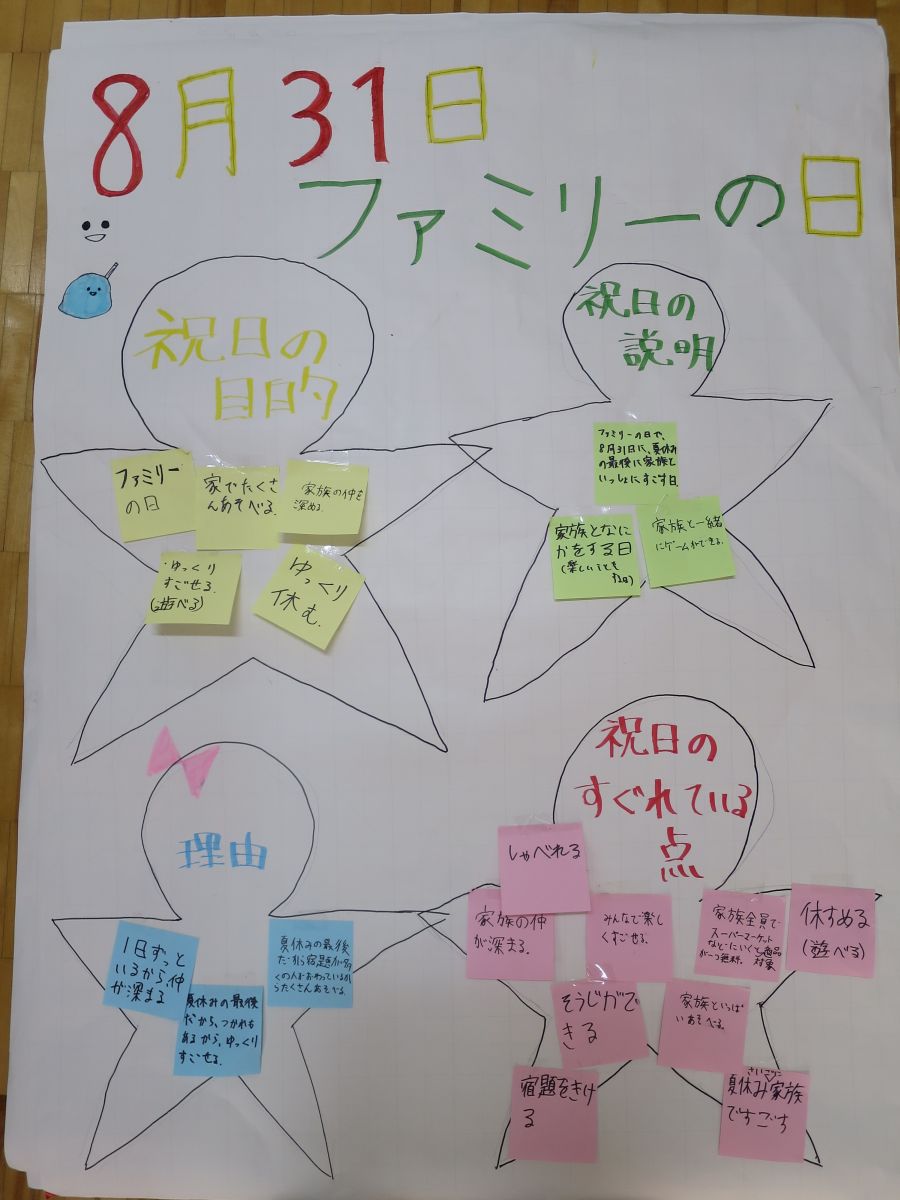 8月31日
ファミリーの日
祝日の
目的
ファミリー
の日
家でたくさ
んあそべる。
家族の仲を
深める。
・ゆっくり
すごせる。
(遊べる)
ゆっくり
休む。
祝日の
説明
ファミリーの日で、
8月31日に、夏休み
の最後に家族と
いっしょにすごす日。
家族となに
かをする日
(楽しいことも
家族と一緒
にゲームができる。
理由
1日ずっと
いるから、仲
が深まる
夏休みの最後
だから、つかれも
あるから、ゆっくり
すごせる。
夏休みの最後
だから宿題が多
くの人がおわっているか
らたくさんあそべる。
祝日の
すぐれている
点
しゃべれる
家族の仲
が深まる。
みんなで楽し
くすごせる。
家族全員で
スーパーマーケット
などにいくと商品
が一つ無料。対象
休すめる
(遊べる)
そうじがで
きる
家族といっぱ
いあそべる。
宿題をきけ
る
さいごに
夏休み家族
ですごす